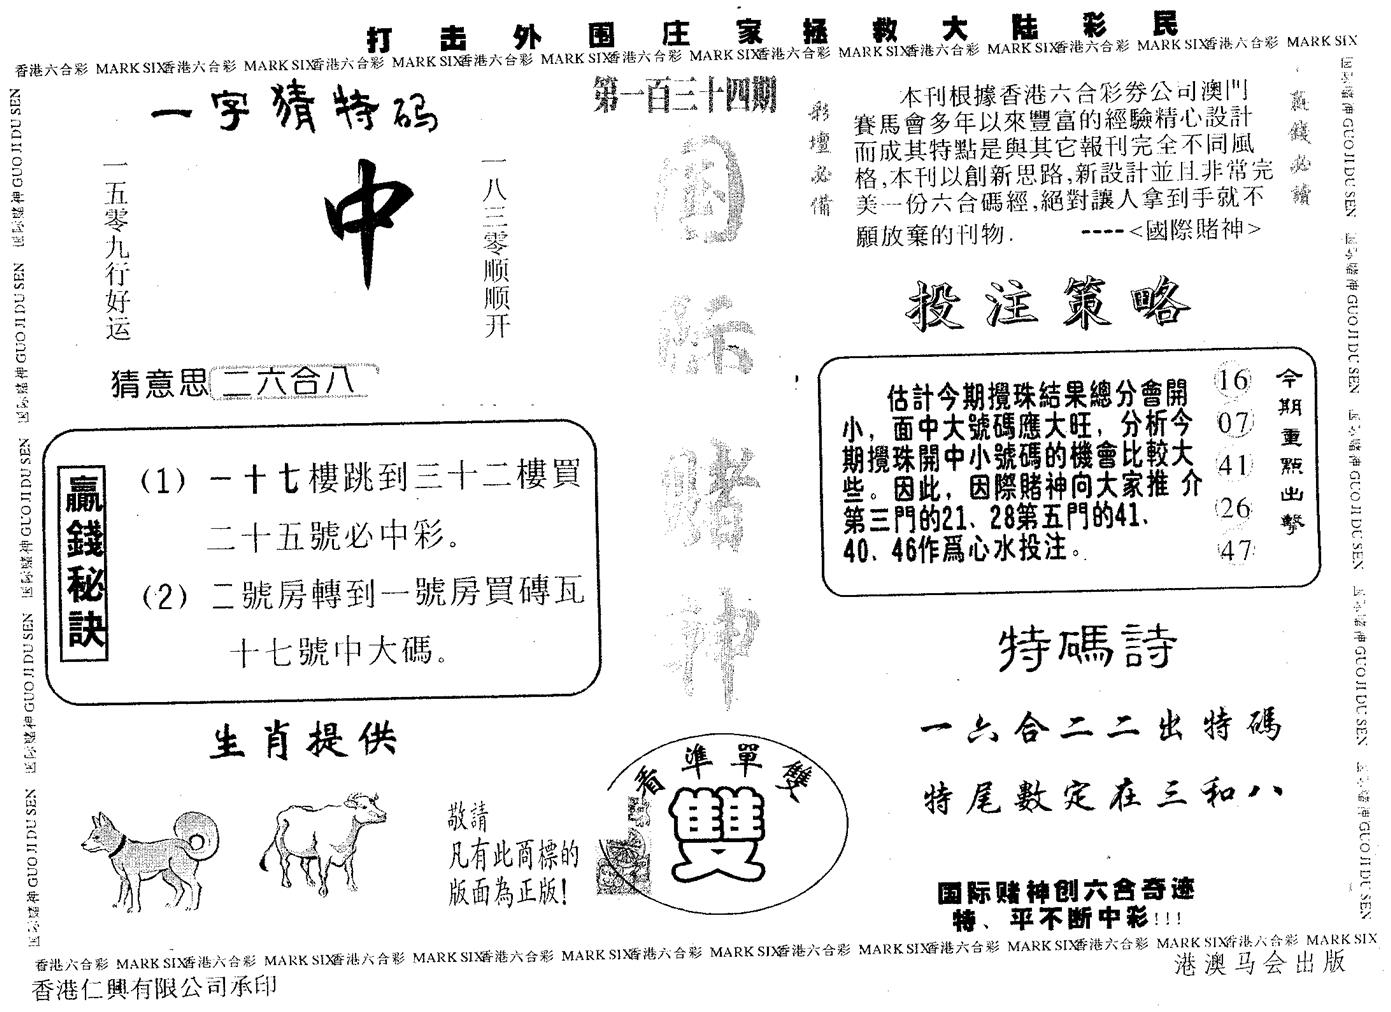 打击外围庄家拯救大陆彩民
香港六合彩 MARK SIX香港六合彩 MARK SIX香港六合彩 MARK SIX香港六合彩 MARK SIX香港六合彩 MARK SIX香港六合彩 MARK SIX香港六合彩 MARK SIX香港六合彩 MARK SIX香港六合彩 MARK SIX
一字猜特码
一五零九行好运
中
一八三零顺顺开
猜意思二六合八
赢錢秘訣
(1) 一十七樓跳到三十二樓買
二十五號必中彩。
(2) 二號房轉到一號房買磚瓦
十七號中大碼。
生肖提供
敬請
凡有此商標的
版面為正版!
第一百三十四期
国际赌神
看準單雙
雙
彩壇必備
本刊根據香港六合彩券公司澳門
賽馬會多年以來豐富的經驗精心設計
而成其特點是與其它報刊完全不同風
格,本刊以創新思路,新設計並且非常完
美一份六合碼經,絕對讓人拿到手就不
願放棄的刊物. ----<國際賭神>
贏錢必讀
投注策略
估計今期攪珠結果總分會開
小，面中大號碼應大旺，分析今
期攪珠開中小號碼的機會比較大
些。因此，因際賭神向大家推 介
第三門的21、28第五門的41、
40、46作爲心水投注。
16
07
41
26
47
今期重點出擊
特碼詩
一六合二二出特碼
特尾數定在三和八
国际赌神创六合奇迹
特、平不断中彩!!!
香港六合彩 MARK SIX香港六合彩 MARK SIX香港六合彩 MARK SIX香港六合彩 MARK SIX香港六合彩 MARK SIX香港六合彩 MARK SIX香港六合彩 MARK SIX香港六合彩 MARK SIX香港六合彩 MARK SIX
香港仁興有限公司承印
港澳马会出版
国际赌神 GUO JI DU SEN 国际赌神 GUO JI DU SEN 国际赌神 GUO JI DU SEN 国际赌神 GUO JI DU SEN 国际赌神 GUO JI DU SEN
国际赌神 GUO JI DU SEN 国际赌神 GUO JI DU SEN 国际赌神 GUO JI DU SEN 国际赌神 GUO JI DU SEN 国际赌神 GUO JI DU SEN